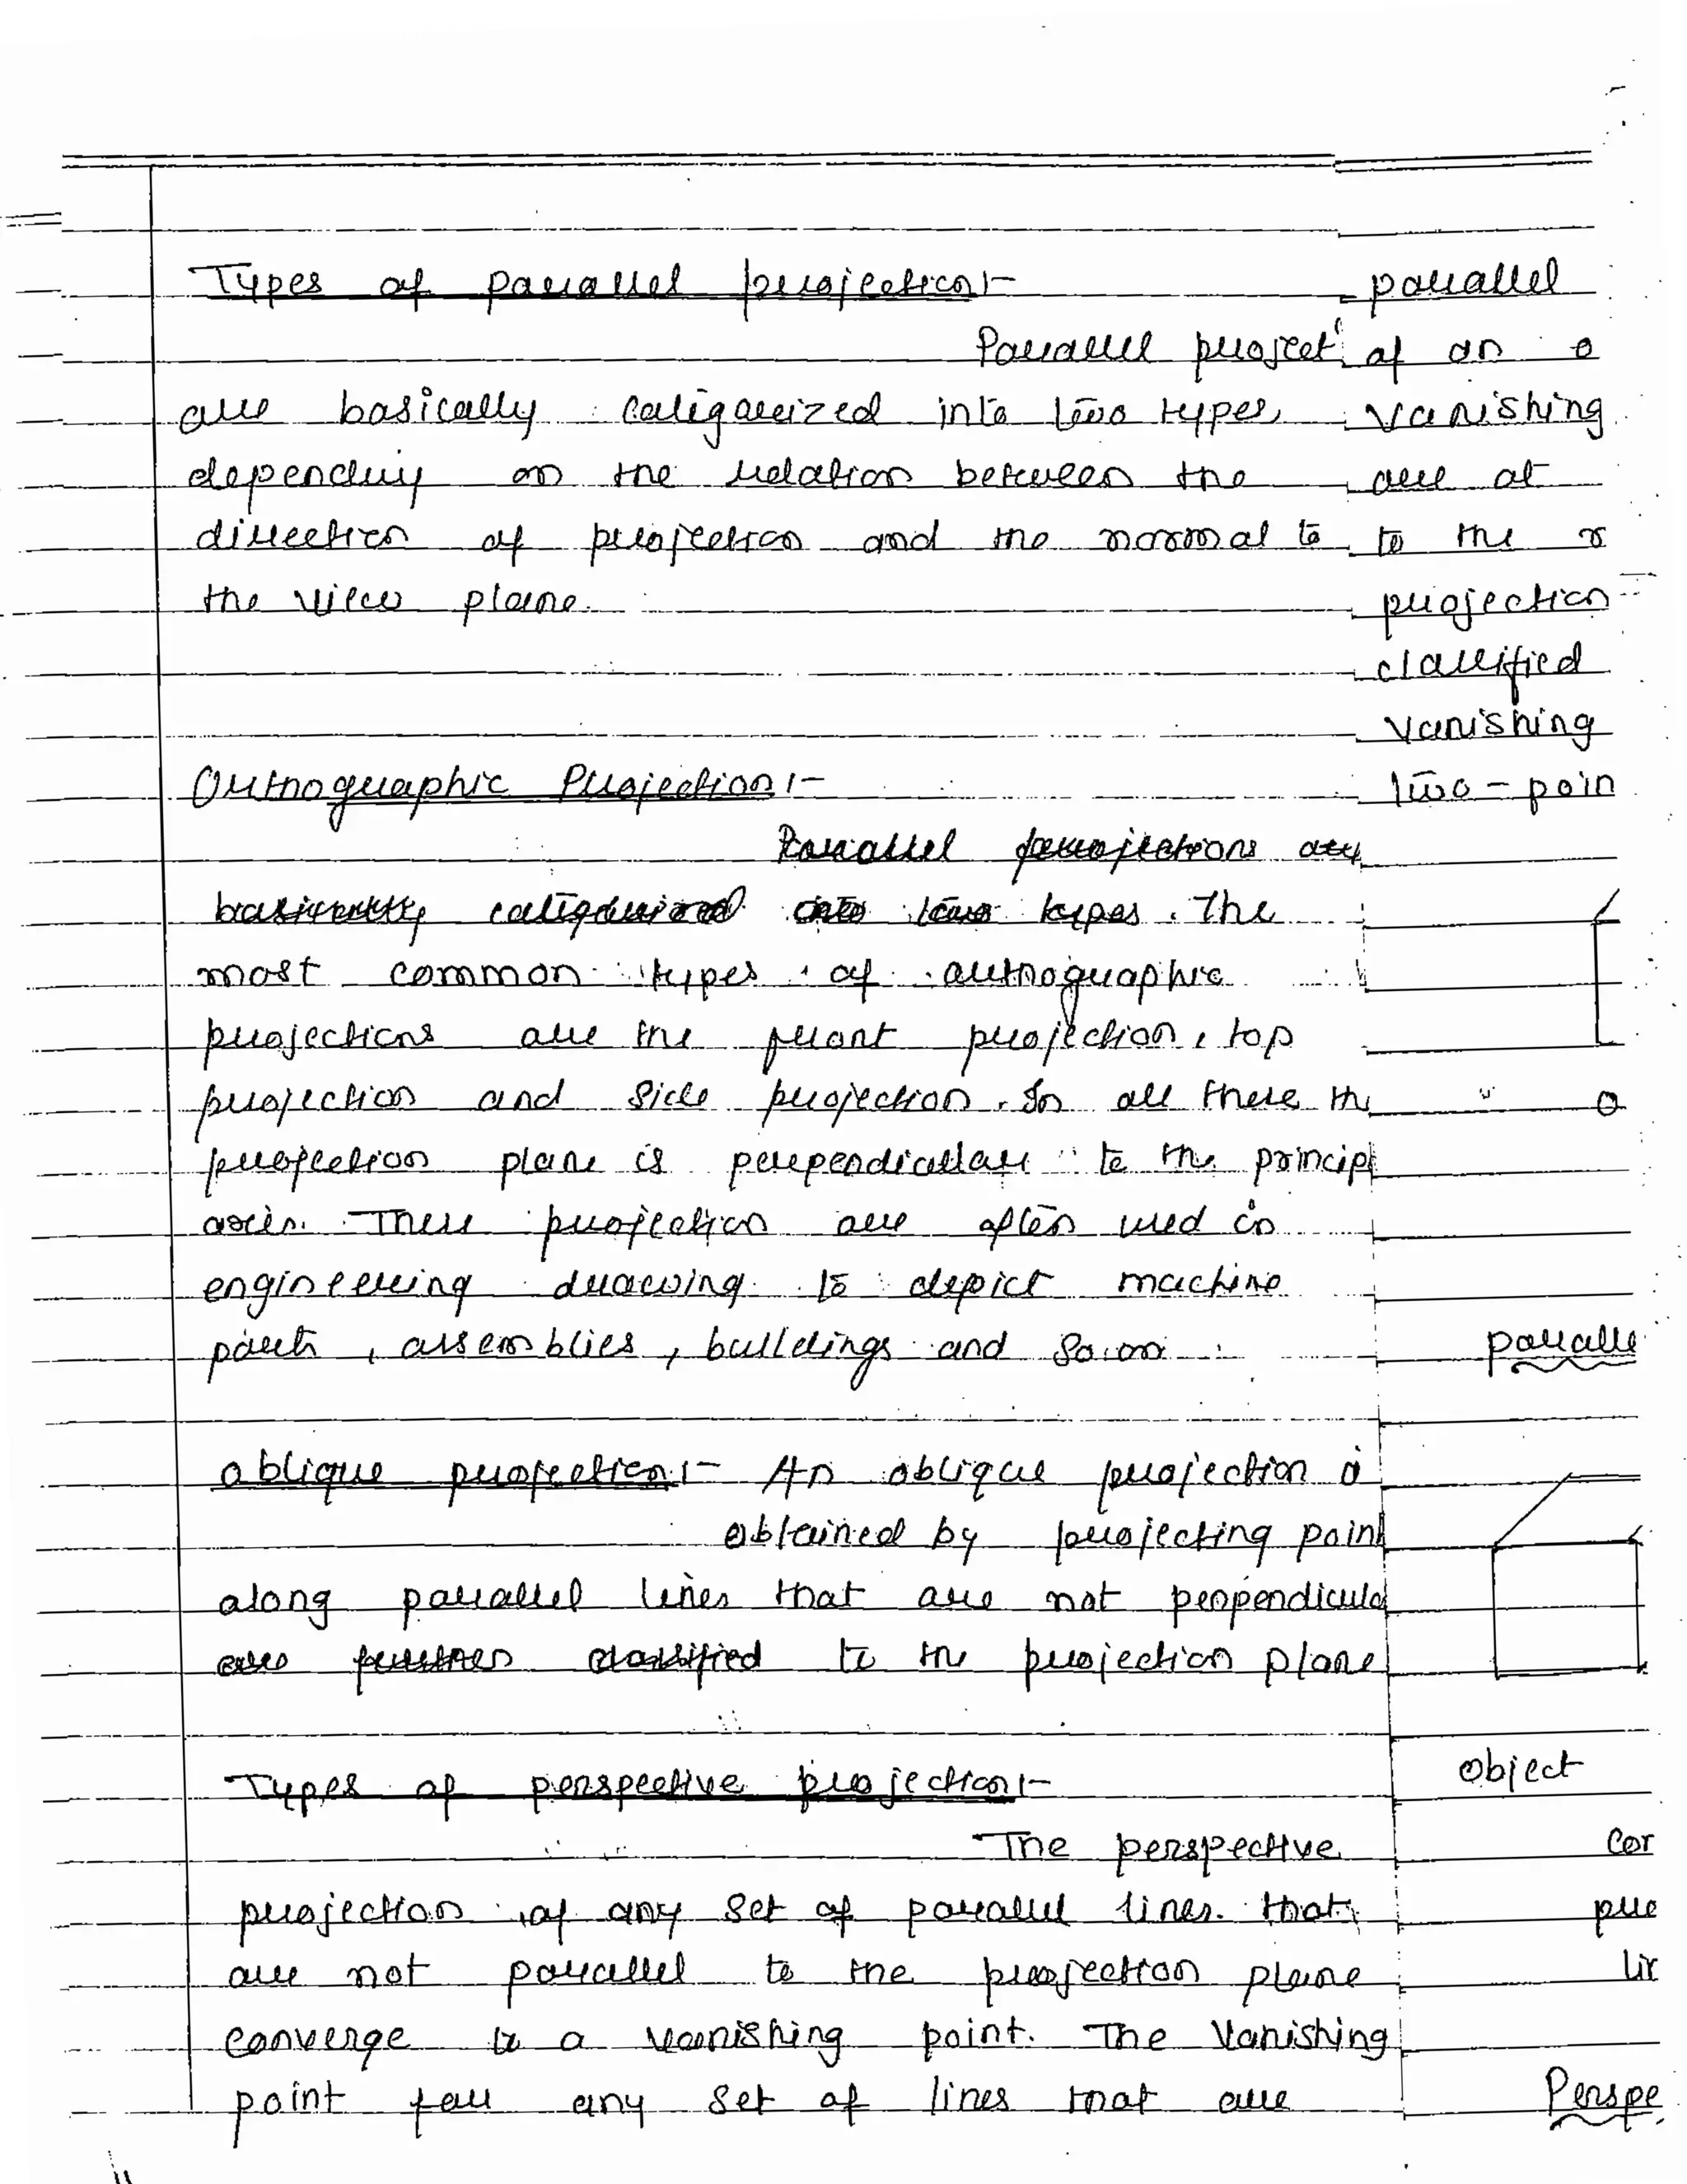 Types of parallel projection :-
Parallel project
are basically categarized into two types
depending on the relation between the
direction of projection and the normal to
the view plane.
Orthographic Projection :-
Parallel projections are
basically categorized into two types. The
most common types of orthographic
projections are the front projection, top
projection and side projection. In all these the
projection plane is perpendicular to the princip
axis. These projection are often used in
engineering drawing to depict machine
parts, assemblies, buildings and so on
oblique projection :- An oblique projection is
obtained by projecting point
along parallel lines that are not perpendicula
are further classified to the projection plane
Types of perspective projection :-
The perspective
projection of any set of parallel lines that
are not parallel to the projection plane
converge to a vanishing point. The vanishing
point for any set of lines that are
parallel
of an o
vanishing
are at
to the
projection
classified
vanishing
two - poin
o
paralle
object
Cor
pro
lir
Perspe